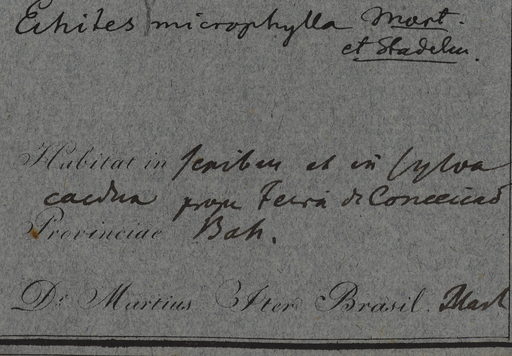 Echites microphylla Mart.
et Stadelm.
Habitat in sepibus et in sylva
caedua prope Feira de Conceicaõ
Provinciae Bah.
Dr. Martius Iter Brasil. Mart